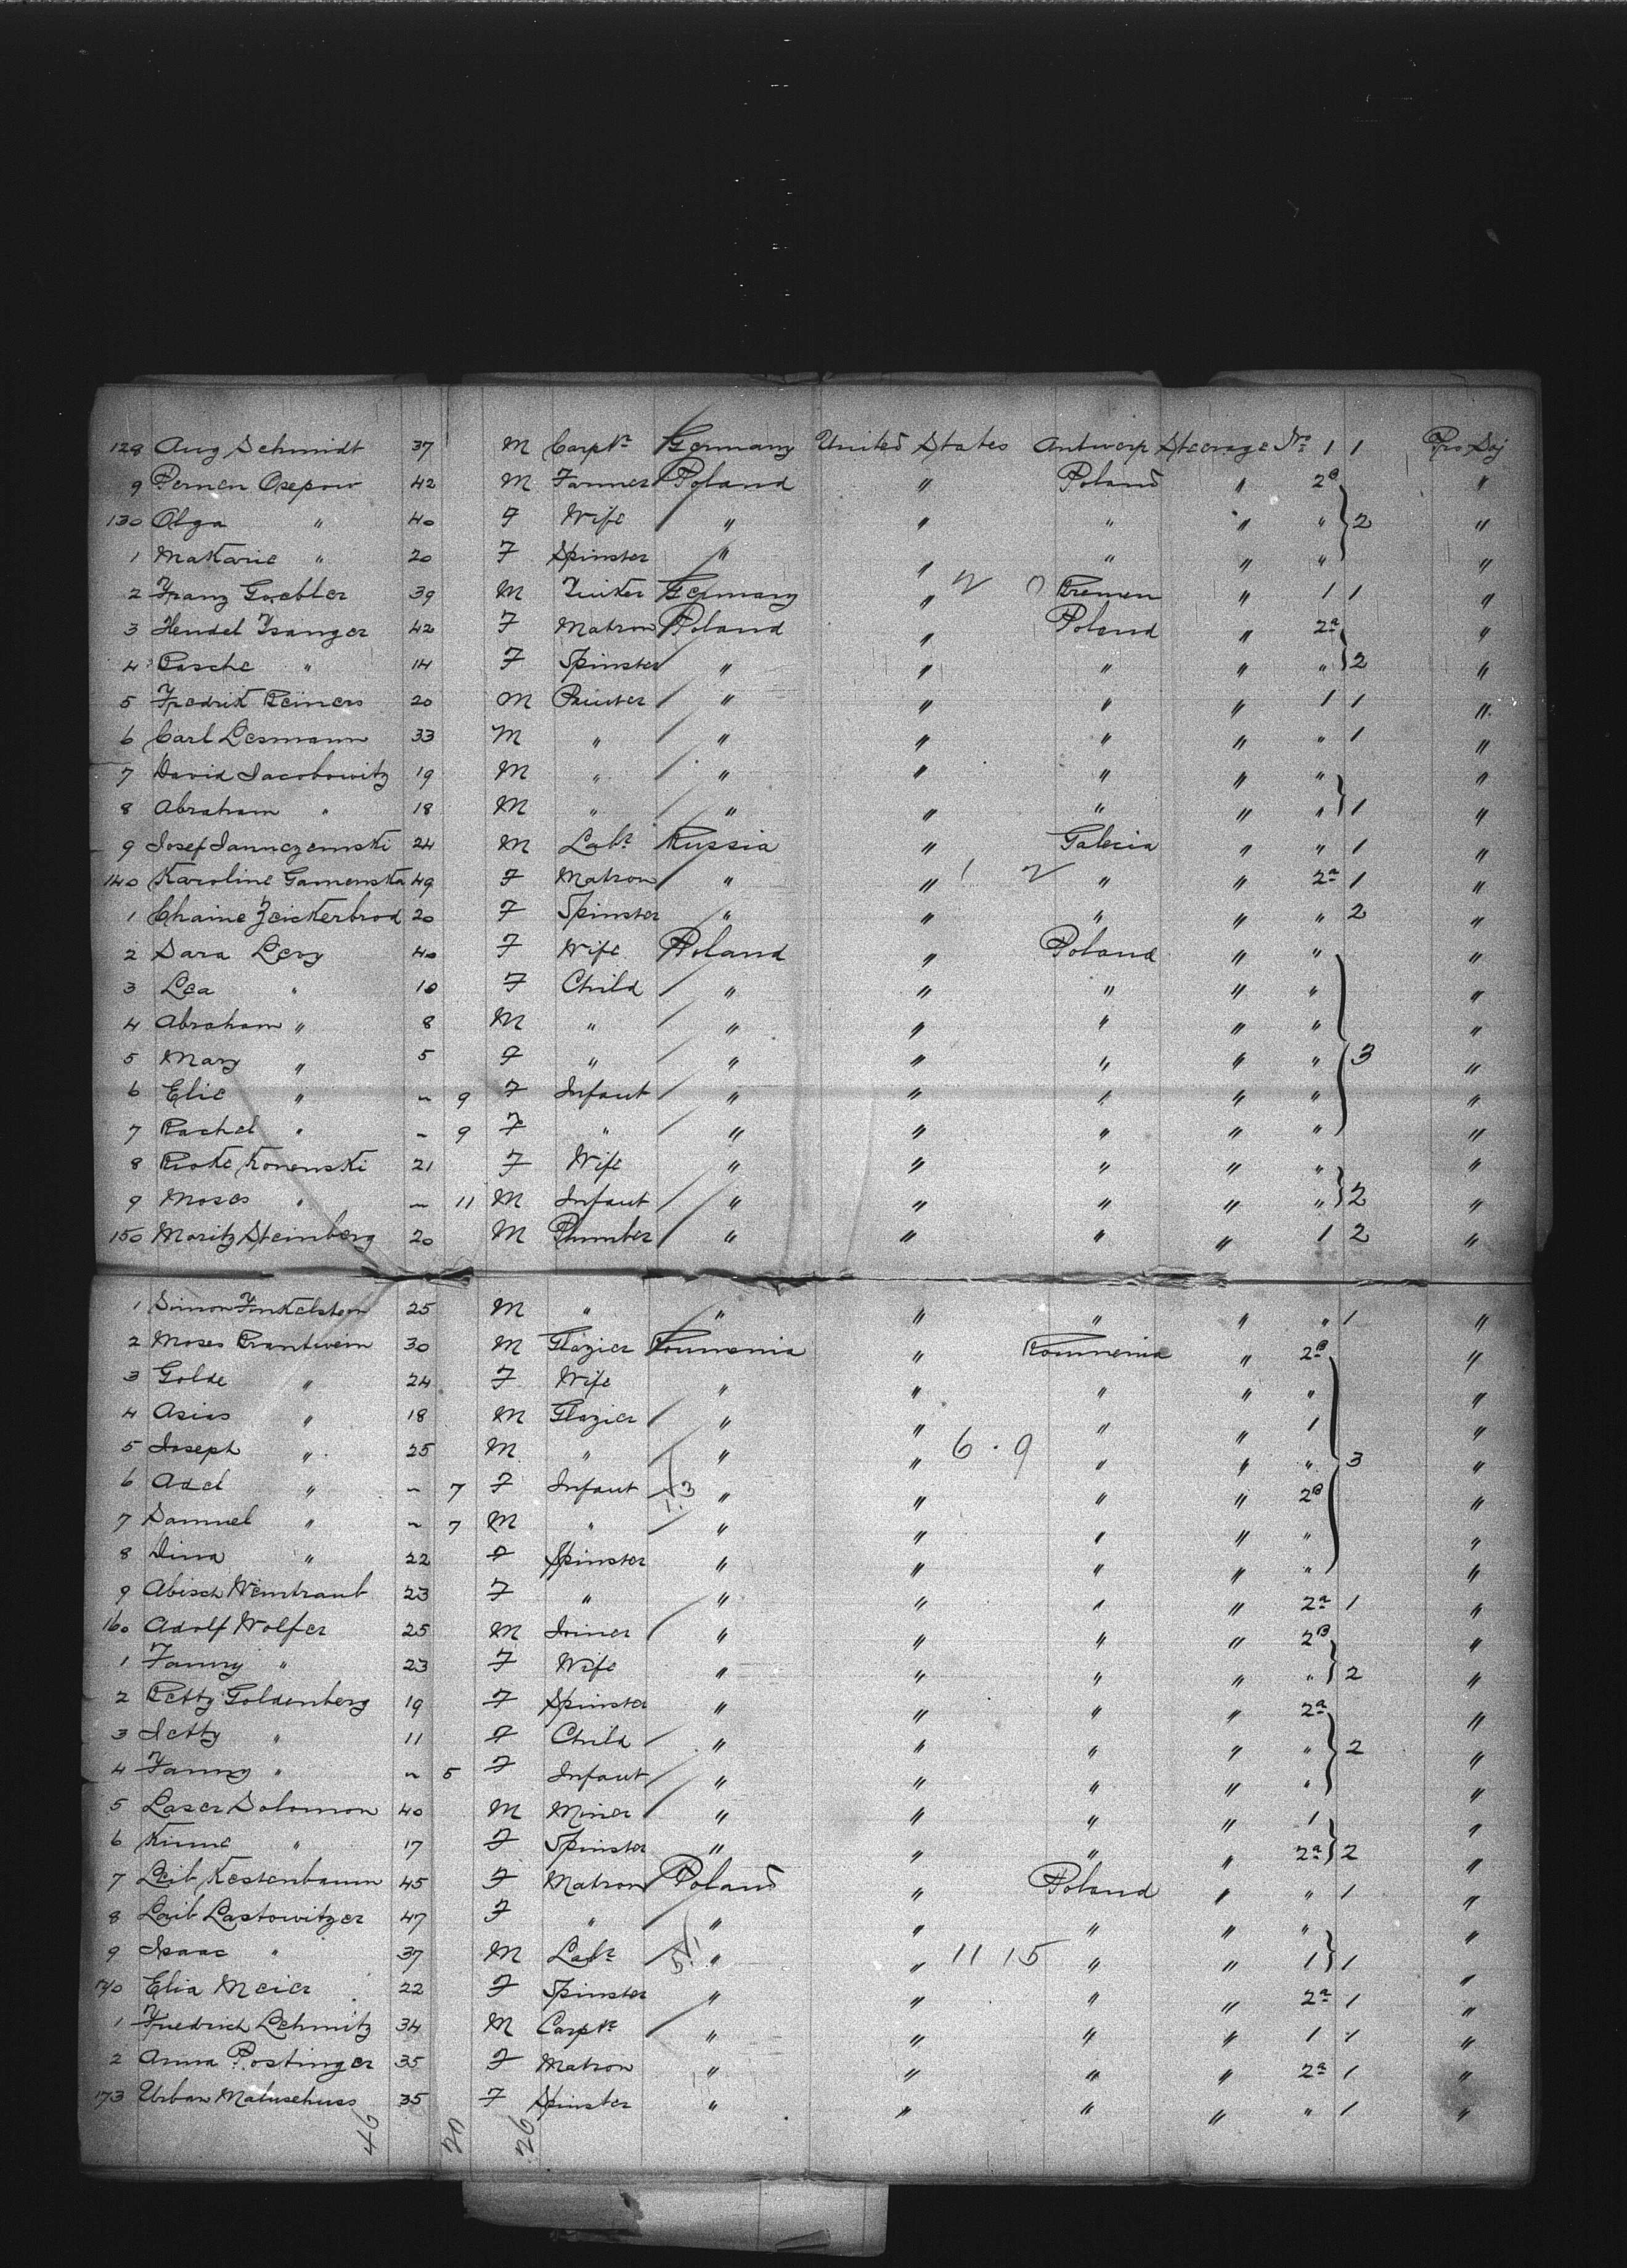 128 Aug Schmidt 37 M Carptr Germany United States Antwerp Steerage No 1 1 Pro Soj
9 Osepow 42 M Farmer Poland " Poland " 2B "
130 Olga " 40 F Wife " " " " " 2 "
1 Makarie " 20 F Spinster " " " " " "
2 Franz Goebler 39 M Germany " Bremen " 1 1 "
3 Hendel Isanger 42 F Matron Poland " Poland " 2a "
4 Pasche " 14 F Spinster " " " " " 2 "
5 Fredrik Reiners 20 M Painter " " " " 1 1 "
6 Carl Lesmann 33 M " " " " " " 1 "
7 David Jacobowitz 19 M " " " " " " "
8 Abraham " 18 M " " " " " " 1 "
9 Josef 24 M Labr Russia " Galicia " " 1 "
140 Karoline Gamenska 49 F Matron " " " " 2a 1 "
1 Chaine Zeickerbrod 20 F Spinster " " " " " 2 "
2 Sara Levy 40 F Wife Poland " Poland " " "
3 Lea " 10 F Child " " " " " "
4 Abraham " 8 M " " " " " " "
5 Mary " 5 F " " " " " " 3 "
6 Elie " ~ 9 F Infant " " " " " "
7 Rachel " ~ 9 F " " " " " " "
8 Konenski 21 F Wife " " " " " "
9 Moses " ~ 11 M Infant " " " " " 2 "
150 Moritz Steinberg 20 M Plumber " " " " 1 2 "
1 Simon Finkelstein 25 M " " " " " " 1 "
2 Moses Brantwein 30 M Glazier Roumenia " Roumenia " 2B "
3 Golde " 24 F Wife " " " " " "
4 Asias " 18 M Glazier " " " " 1 "
5 Joseph " 25 M " " " 6 . 9 " " " 3 "
6 Adel " ~ 7 F Infant " " " " 2B "
7 Samuel " ~ 7 M " " " " " " "
8 Dina " 22 F Spinster " " " " " "
9 Abisch Weintraub 23 F " " " " " 2a 1 "
160 Adolf Wolfer 25 M Joiner " " " " 2B "
1 Fanny " 23 F Wife " " " " " 2 "
2 Betty Goldenberg 19 F Spinster " " " " 2a "
3 Jetty " 11 F Child " " " " " 2 "
4 Fanny " ~ 5 F Infant " " " " " "
5 Laser Solomon 40 M Miner " " " " 1 "
6 Kinne " 17 F Spinster " " " " 2a 2 "
7 Leib Kestenbaum 45 F Matron Poland " Poland " " 1 "
8 Laib Lastowitzer 47 F " " " " " " "
9 Isaac " 37 M Labr " " 11 15 " " 1 1 "
170 Elia Meier 22 F Spinster " " " " 2a 1 "
1 Friedrich Lehmitz 34 M Carptr " " " " 1 1 "
2 Anna Postinger 35 F Matron " " " " 2a 1 "
173 Urban Matuschuss 35 F Spinster " " " " " 1 "
46 20 26